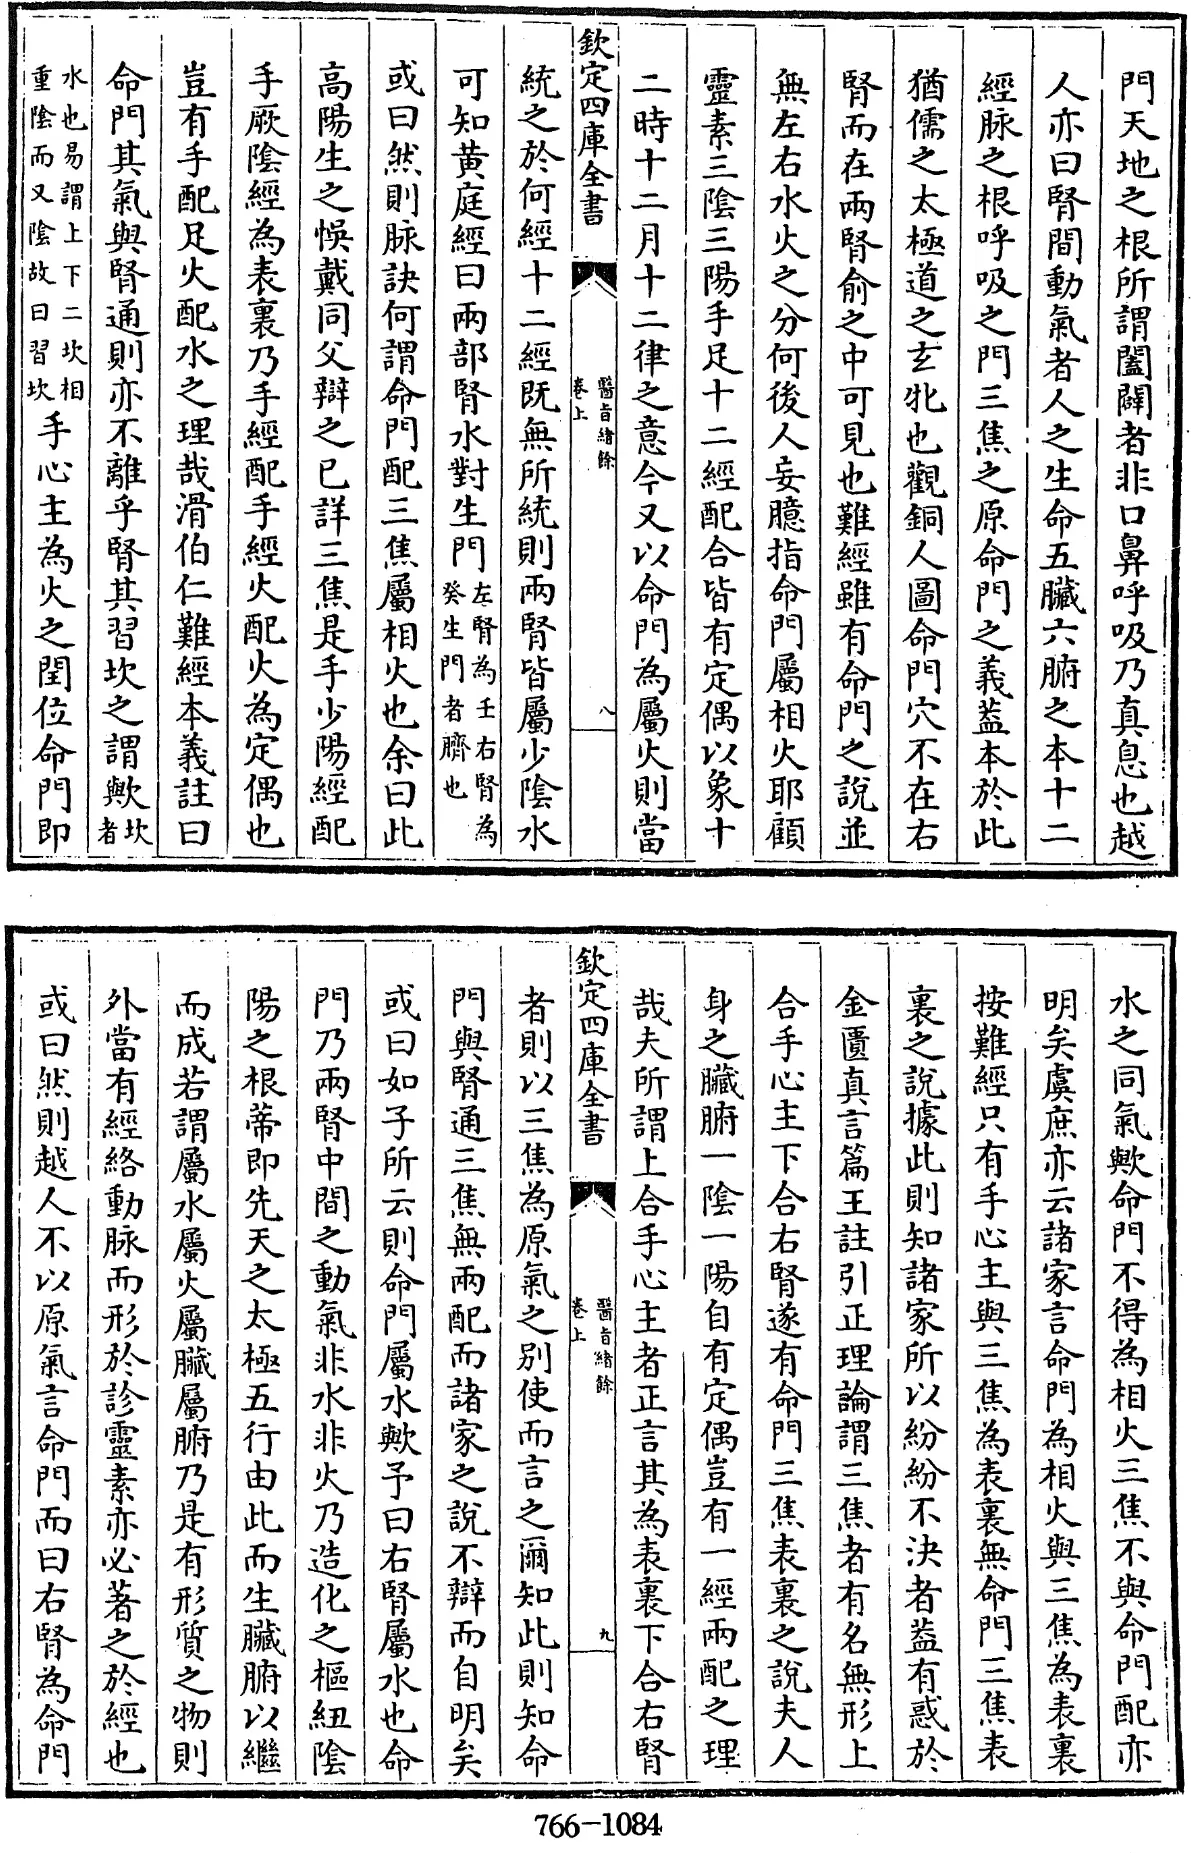 門天地之根所謂闔闢者非口鼻呼吸乃真息也越
人亦曰腎間動氣者人之生命五臟六腑之本十二
經脉之根呼吸之門三焦之原命門之義葢本於此
猶儒之太極道之玄牝也觀銅人圖命門穴不在右
腎而在兩腎俞之中可見也難經雖有命門之說並
無左右水火之分何後人妄臆指命門屬相火耶顧
靈素三陰三陽手足十二經配合皆有定偶以象十
二時十二月十二律之意今又以命門為屬火則當
欽定四庫全書
醫旨緒餘
卷上
八
統之於何經十二經既無所統則兩腎皆屬少陰水
可知黄庭經曰兩部腎水對生門左腎為壬右腎為
癸生門者臍也
或曰然則脉訣何謂命門配三焦屬相火也余曰此
高陽生之悞戴同父辯之已詳三焦是手少陽經配
手厥陰經為表裏乃手經配手經火配火為定偶也
豈有手配足火配水之理哉滑伯仁難經本義註曰
命門其氣與腎通則亦不離乎腎其習坎之謂歟坎
者
水也易謂上下二坎相
重陰而又陰故曰習坎手心主為火之閏位命門即
水之同氣歟命門不得為相火三焦不與命門配亦
明矣虞庶亦云諸家言命門為相火與三焦為表裏
按難經只有手心主與三焦為表裏無命門三焦表
裏之說據此則知諸家所以紛紛不決者葢有惑於
金匱真言篇王註引正理論謂三焦者有名無形上
合手心主下合右腎遂有命門三焦表裏之說夫人
身之臟腑一陰一陽自有定偶豈有一經兩配之理
哉夫所謂上合手心主者正言其為表裏下合右腎
欽定四庫全書
醫旨緒餘
卷上
九
者則以三焦為原氣之别使而言之爾知此則知命
門與腎通三焦無兩配而諸家之說不辯而自明矣
或曰如子所云則命門屬水歟予曰右腎屬水也命
門乃兩腎中間之動氣非水非火乃造化之樞紐陰
陽之根蒂即先天之太極五行由此而生臟腑以繼
而成若謂屬水屬火屬臟屬腑乃是有形質之物則
外當有經絡動脉而形於診靈素亦必著之於經也
或曰然則越人不以原氣言命門而曰右腎為命門
766-1084